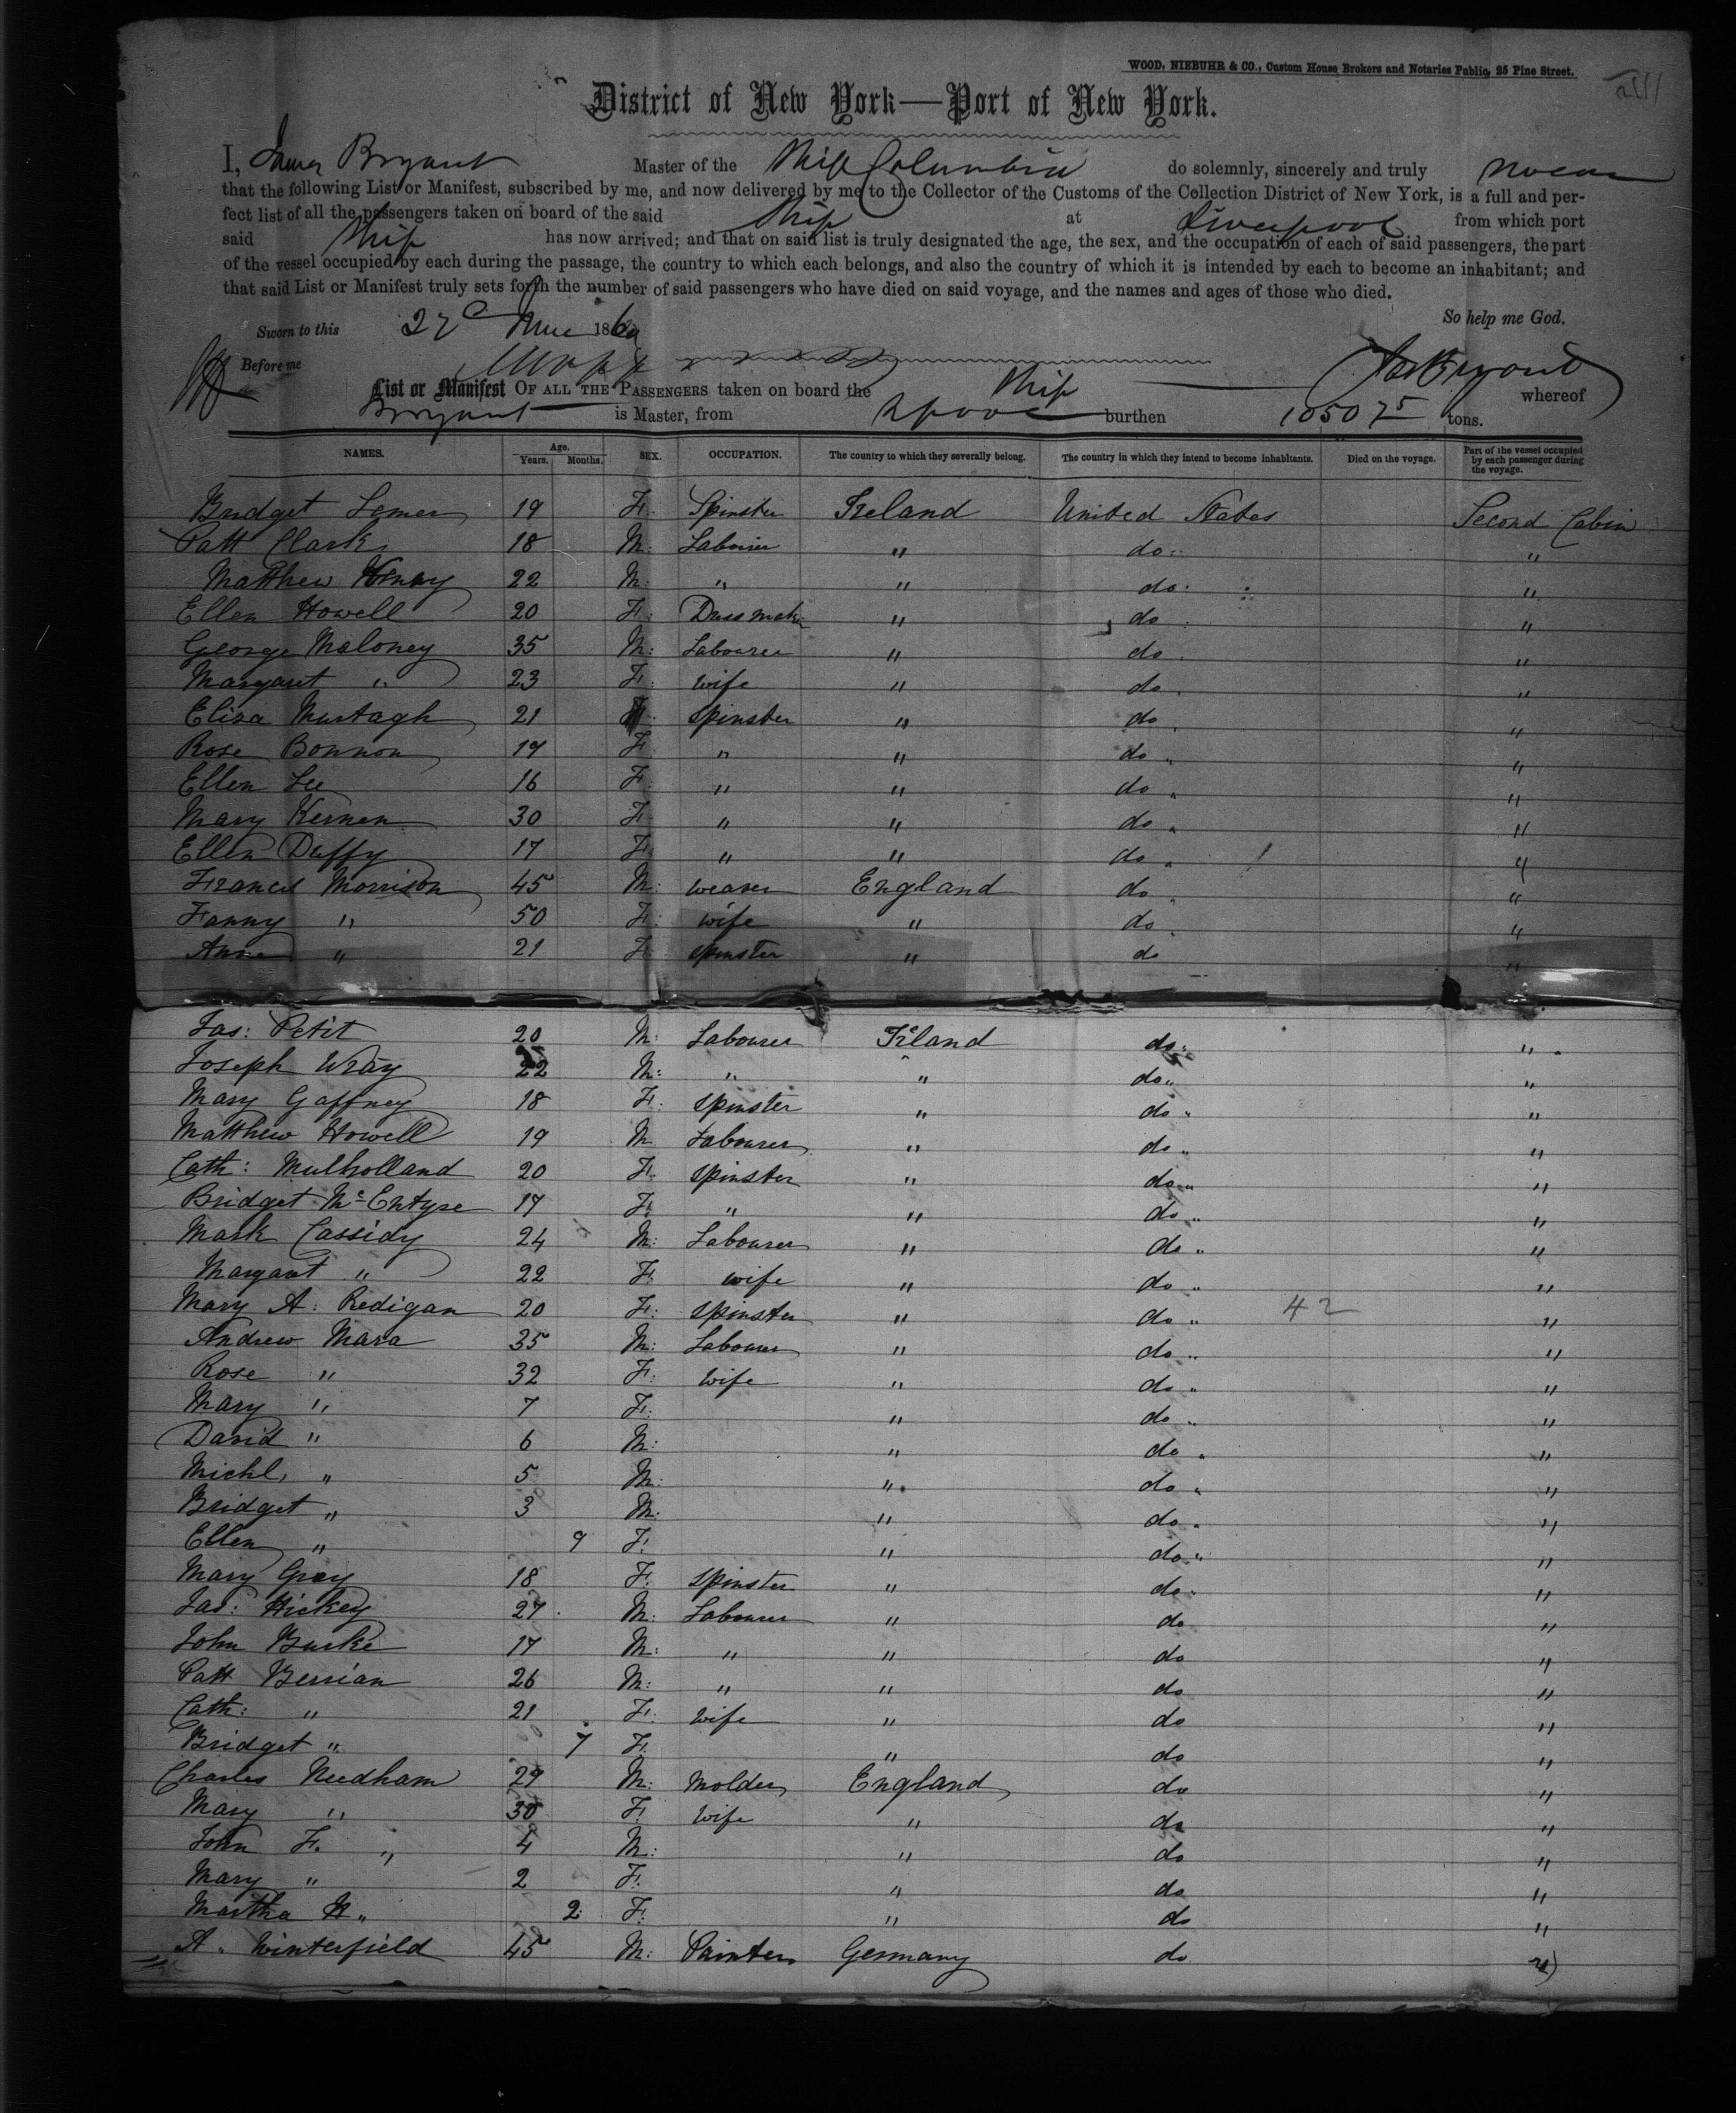 WOOD, NIEBUHR & CO., Custom House Brokers and Notaries Public, 25 Pine Street.
District of New York—Port of New York.
I, James Bryant Master of the Ship Columbia do solemnly, sincerely and truly swear
that the following List or Manifest, subscribed by me, and now delivered by me to the Collector of the Customs of the Collection District of New York, is a full and per-
fect list of all the passengers taken on board of the said Ship at Liverpool from which port
said Ship has now arrived; and that on said list is truly designated the age, the sex, and the occupation of each of said passengers, the part
of the vessel occupied by each during the passage, the country to which each belongs, and also the country of which it is intended by each to become an inhabitant; and
that said List or Manifest truly sets forth the number of said passengers who have died on said voyage, and the names and ages of those who died.
So help me God.
Sworn to this 27 June 1860
Before me
Jas Bryant
List or Manifest OF ALL THE PASSENGERS taken on board the Ship whereof
Bryant is Master, from Lpool burthen 1050 75 tons.
NAMES. Age. Years. Months. SEX. OCCUPATION. The country to which they severally belong. The country in which they intend to become inhabitants. Died on the voyage. Part of the vessel occupied by each passenger during the voyage.
Bridget 19 F. Spinster Ireland United States Second Cabin
Patt Clark 18 M: Labourer " do "
Matthew Henry 22 M: " " do "
Ellen Howell 20 F. Dress maker " do "
George Maloney 35 M: Labourer " do "
Margaret " 23 F. wife " do "
Eliza Murtagh 21 F. spinster " do "
Rose Bonnon 19 F. " " do "
Ellen Lee 16 F. " " do "
Mary Kernen 30 F. " " do "
Ellen Duffy 17 F. " " do "
Francis Morrison 45 M: weaver England do "
Fanny " 50 F. wife " do "
Anne " 21 F. spinster " do "
Jas: Petit 20 M: Labourer Ireland do "
Joseph Wray 22 M: " " do "
Mary Gaffney 18 F. spinster " do "
Matthew Howell 19 M Labourer " do "
Cath: Mulholland 20 F. spinster " do "
Bridget McEntyre 17 F. " " do "
Mark Cassidy 24 M: Labourer " do "
Margaret " 22 F. wife " do "
Mary A: Redigan 20 F. spinster " do " 42 "
Andrew Mara 35 M: Labourer " do "
Rose " 32 F. wife " do "
Mary " 7 F. " do "
David " 6 M: " do "
Michl, " 5 M: " do "
Bridget " 3 M: " do "
Ellen " 9 F. " do "
Mary Gray 18 F. spinster " do "
Jas: Hickey 27 M: Labourer " do "
John Burke 17 M: " " do "
Patt Berrian 26 M: " " do "
Cath: " 21 F. wife " do "
Bridget " 7 F. " do "
Charles Needham 29 M: Molder England do "
Mary " 30 F. wife " do "
John F. " 4 M: " do "
Mary " 2 F. " do "
Martha H " 2 F. " do "
A. Winterfield 45 M: Painter Germany do "